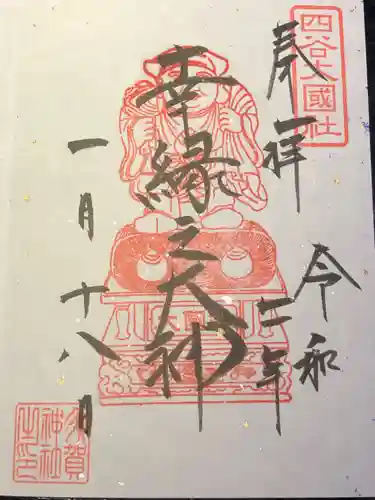 四谷大國社
奉拝
令和二年
幸縁之大神
一月十八日
須賀
神社
之印